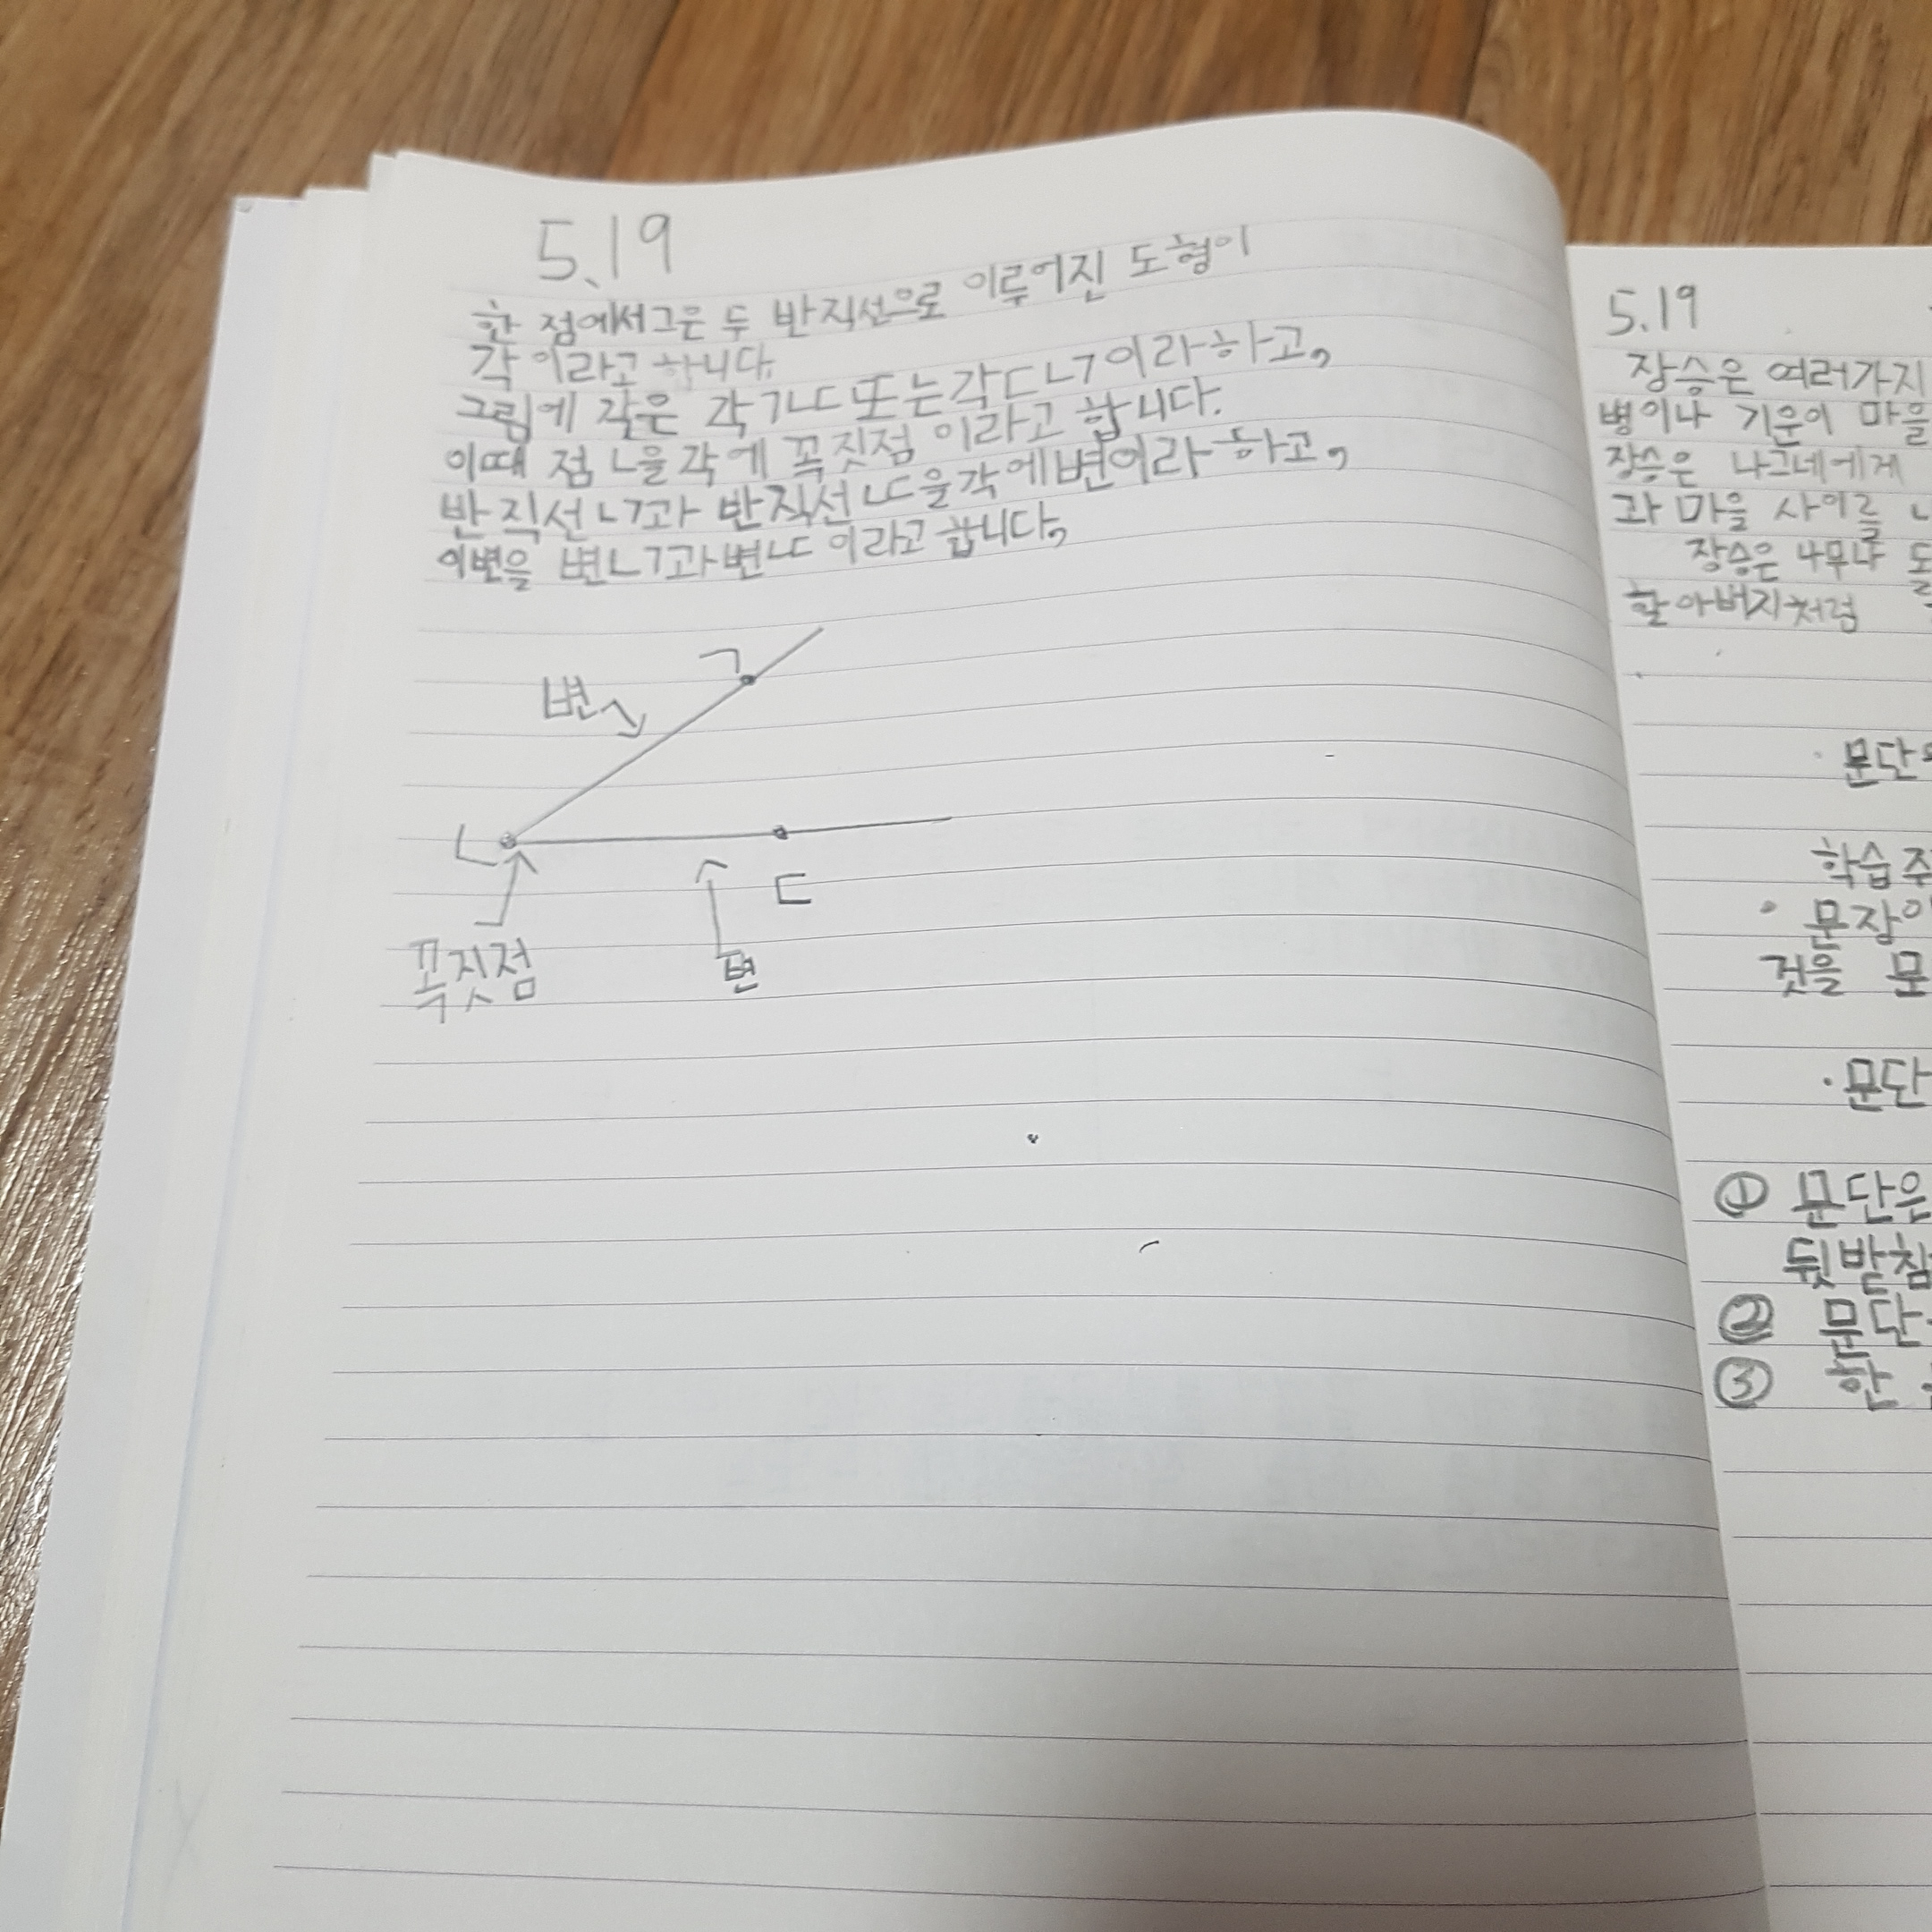 5.19
한 점에서그은 두 반직선으로 이루어진 도형이
각 이라고 합니다.
그림에 각은 각ㄱㄴㄷ또는각ㄷㄴㄱ이라하고,
이때 점ㄴ을각에 꼭짓점 이라고 합니다.
반직선ㄴㄱ과 반직선ㄴㄷ을각에변이라 하고,
이변을 변ㄴㄱ과변ㄴㄷ 이라고 합니다,
ㄱ
변
ㄴ
ㄷ
꼭짓점
변
5.19
장승은 여러가지
병이나 기운이 마을
장승은 나그네에게
과 마을 사이를
장승은 나무나
할아버지처럼
문단
학습
문장이
것을 문
문단
① 문단은
뒷받침
② 문단
③ 한